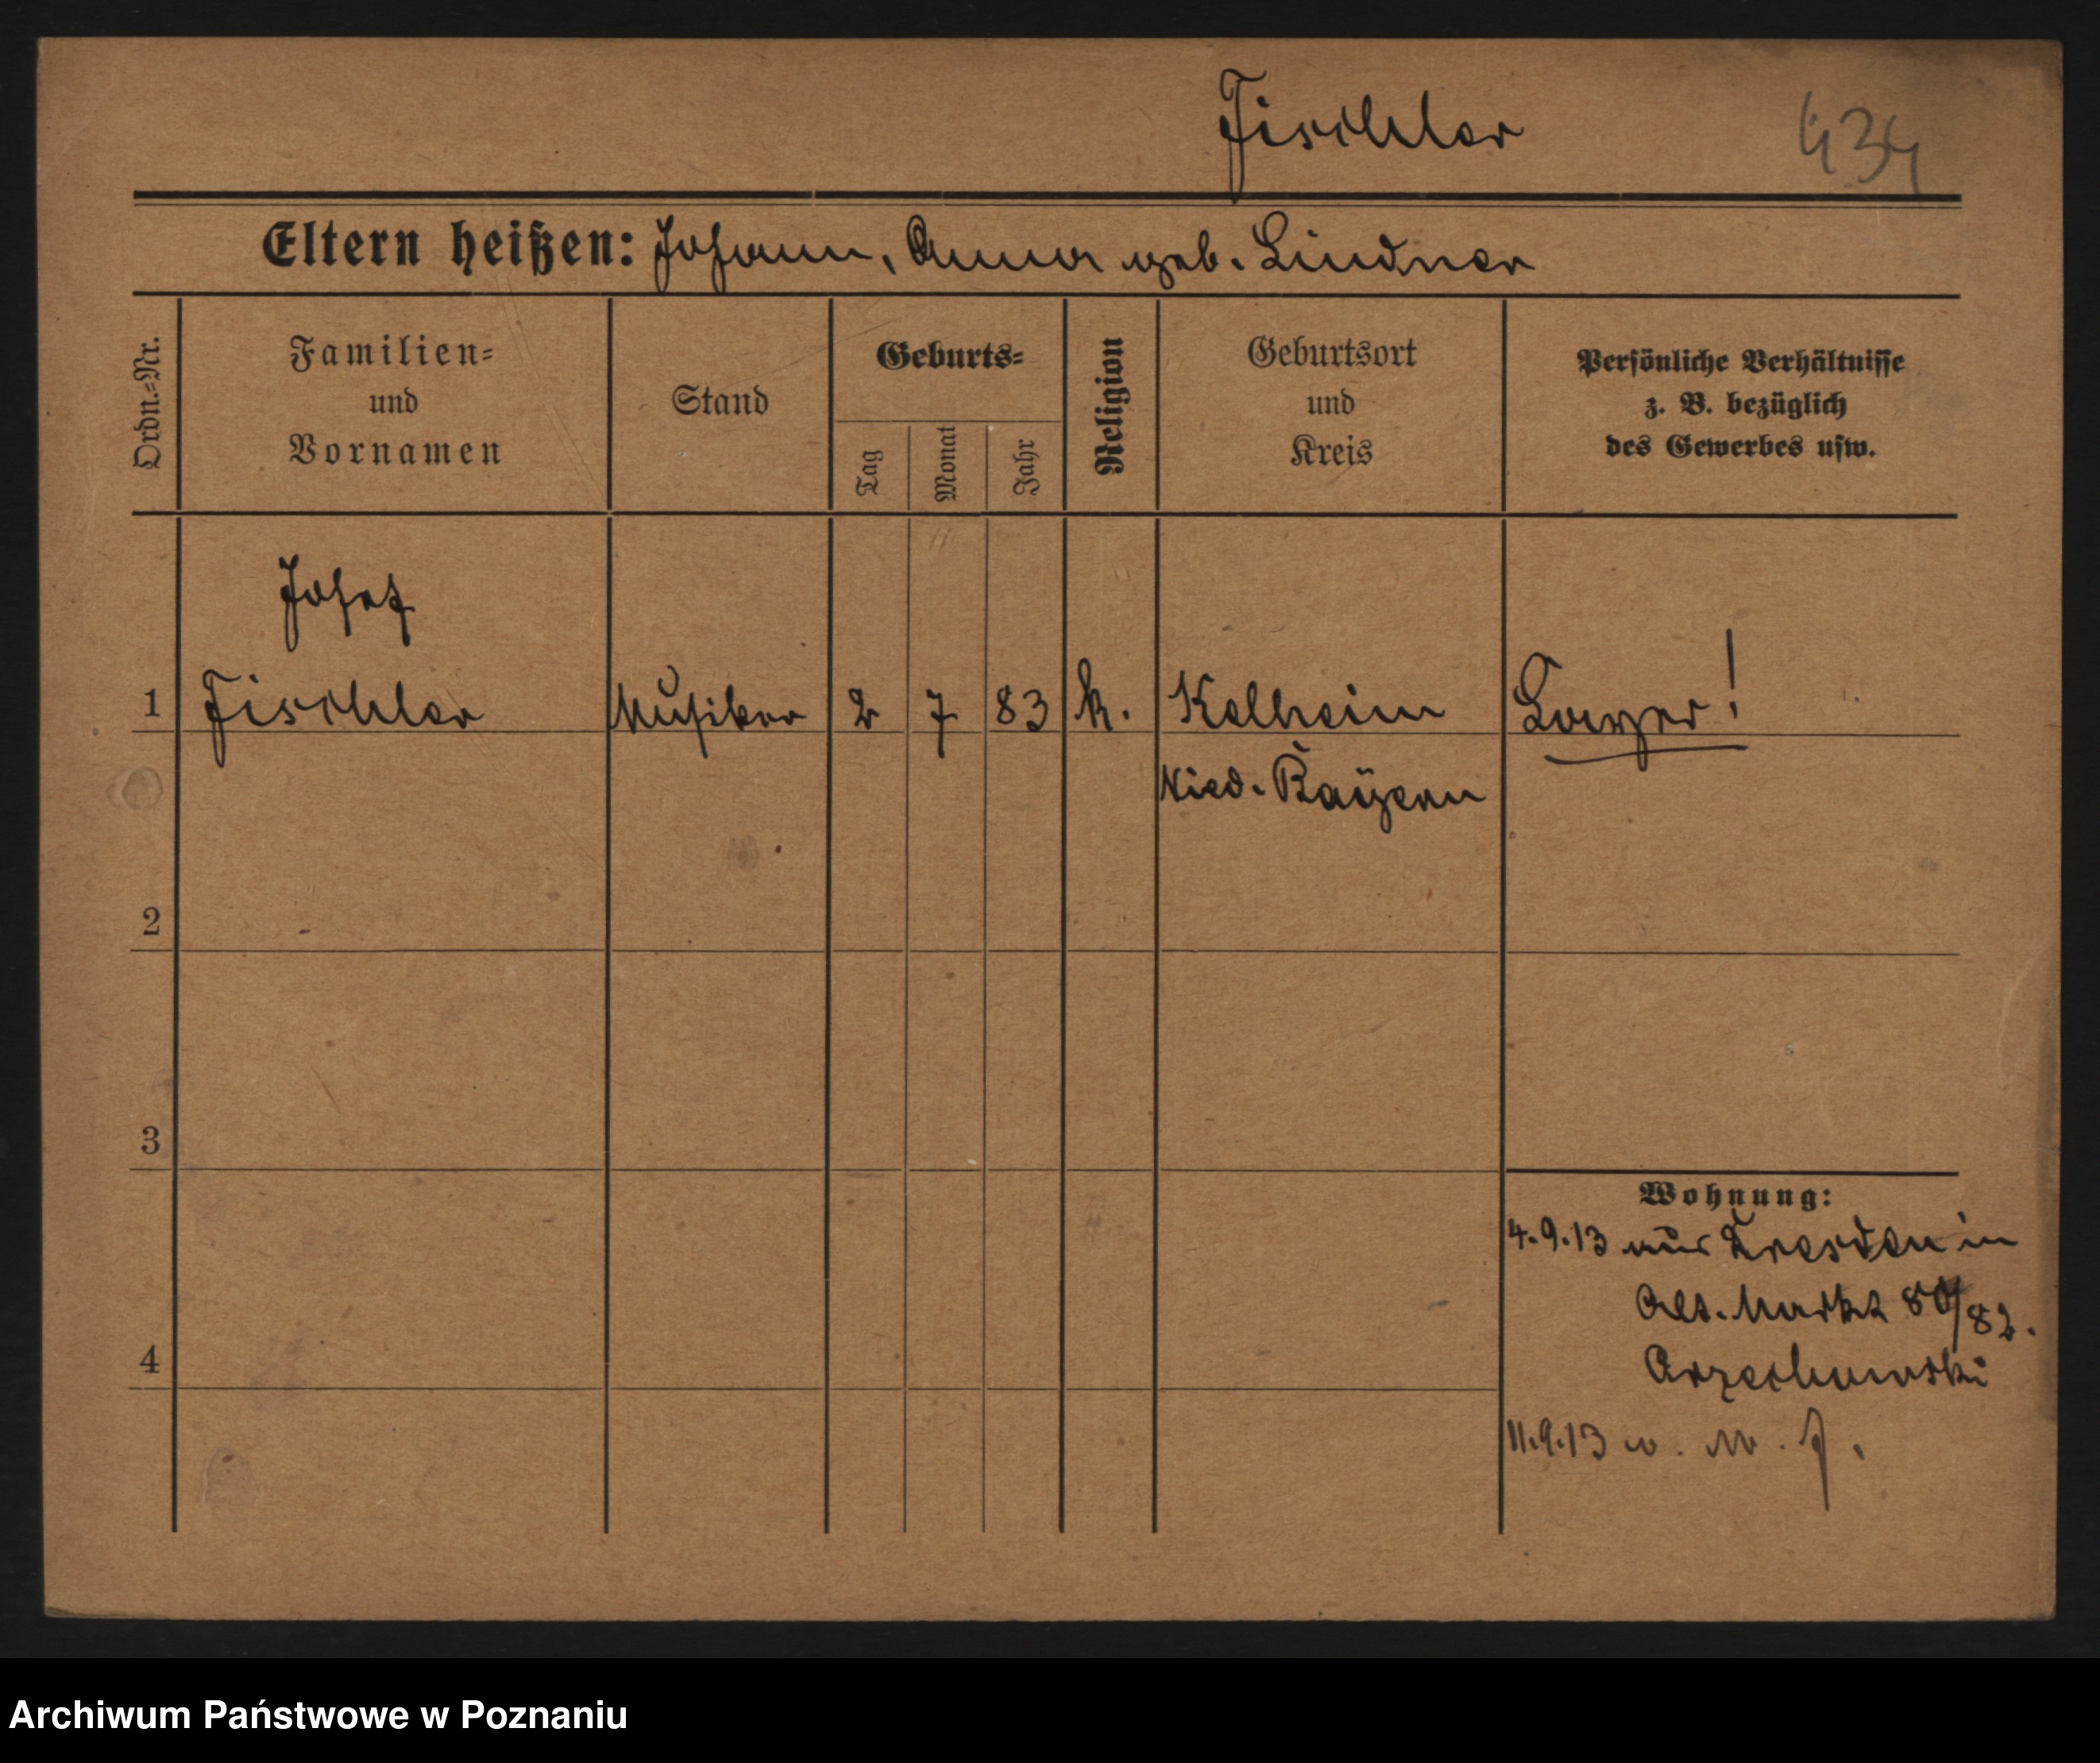 Fischler
434
Eltern heißen: Johann, Anna geb. Lindner
Ordn.=Nr.
Familien=
und
Vornamen
Stand
Geburts=
Tag
Monat
Jahr
Religion
Geburtsort
und
Kreis
Persönliche Verhältnisse
z. B. bezüglich
des Gewerbes usw.
Josef
1 Fischler Musiker 2 7 83 k. Kelheim Bayer!
Nied. Bayern
2
3
4
Wohnung:
4.9.13 aus Dresden in
Alt. Markt 80/82.
Orzechowski
11.9.13
Archiwum Państwowe w Poznaniu